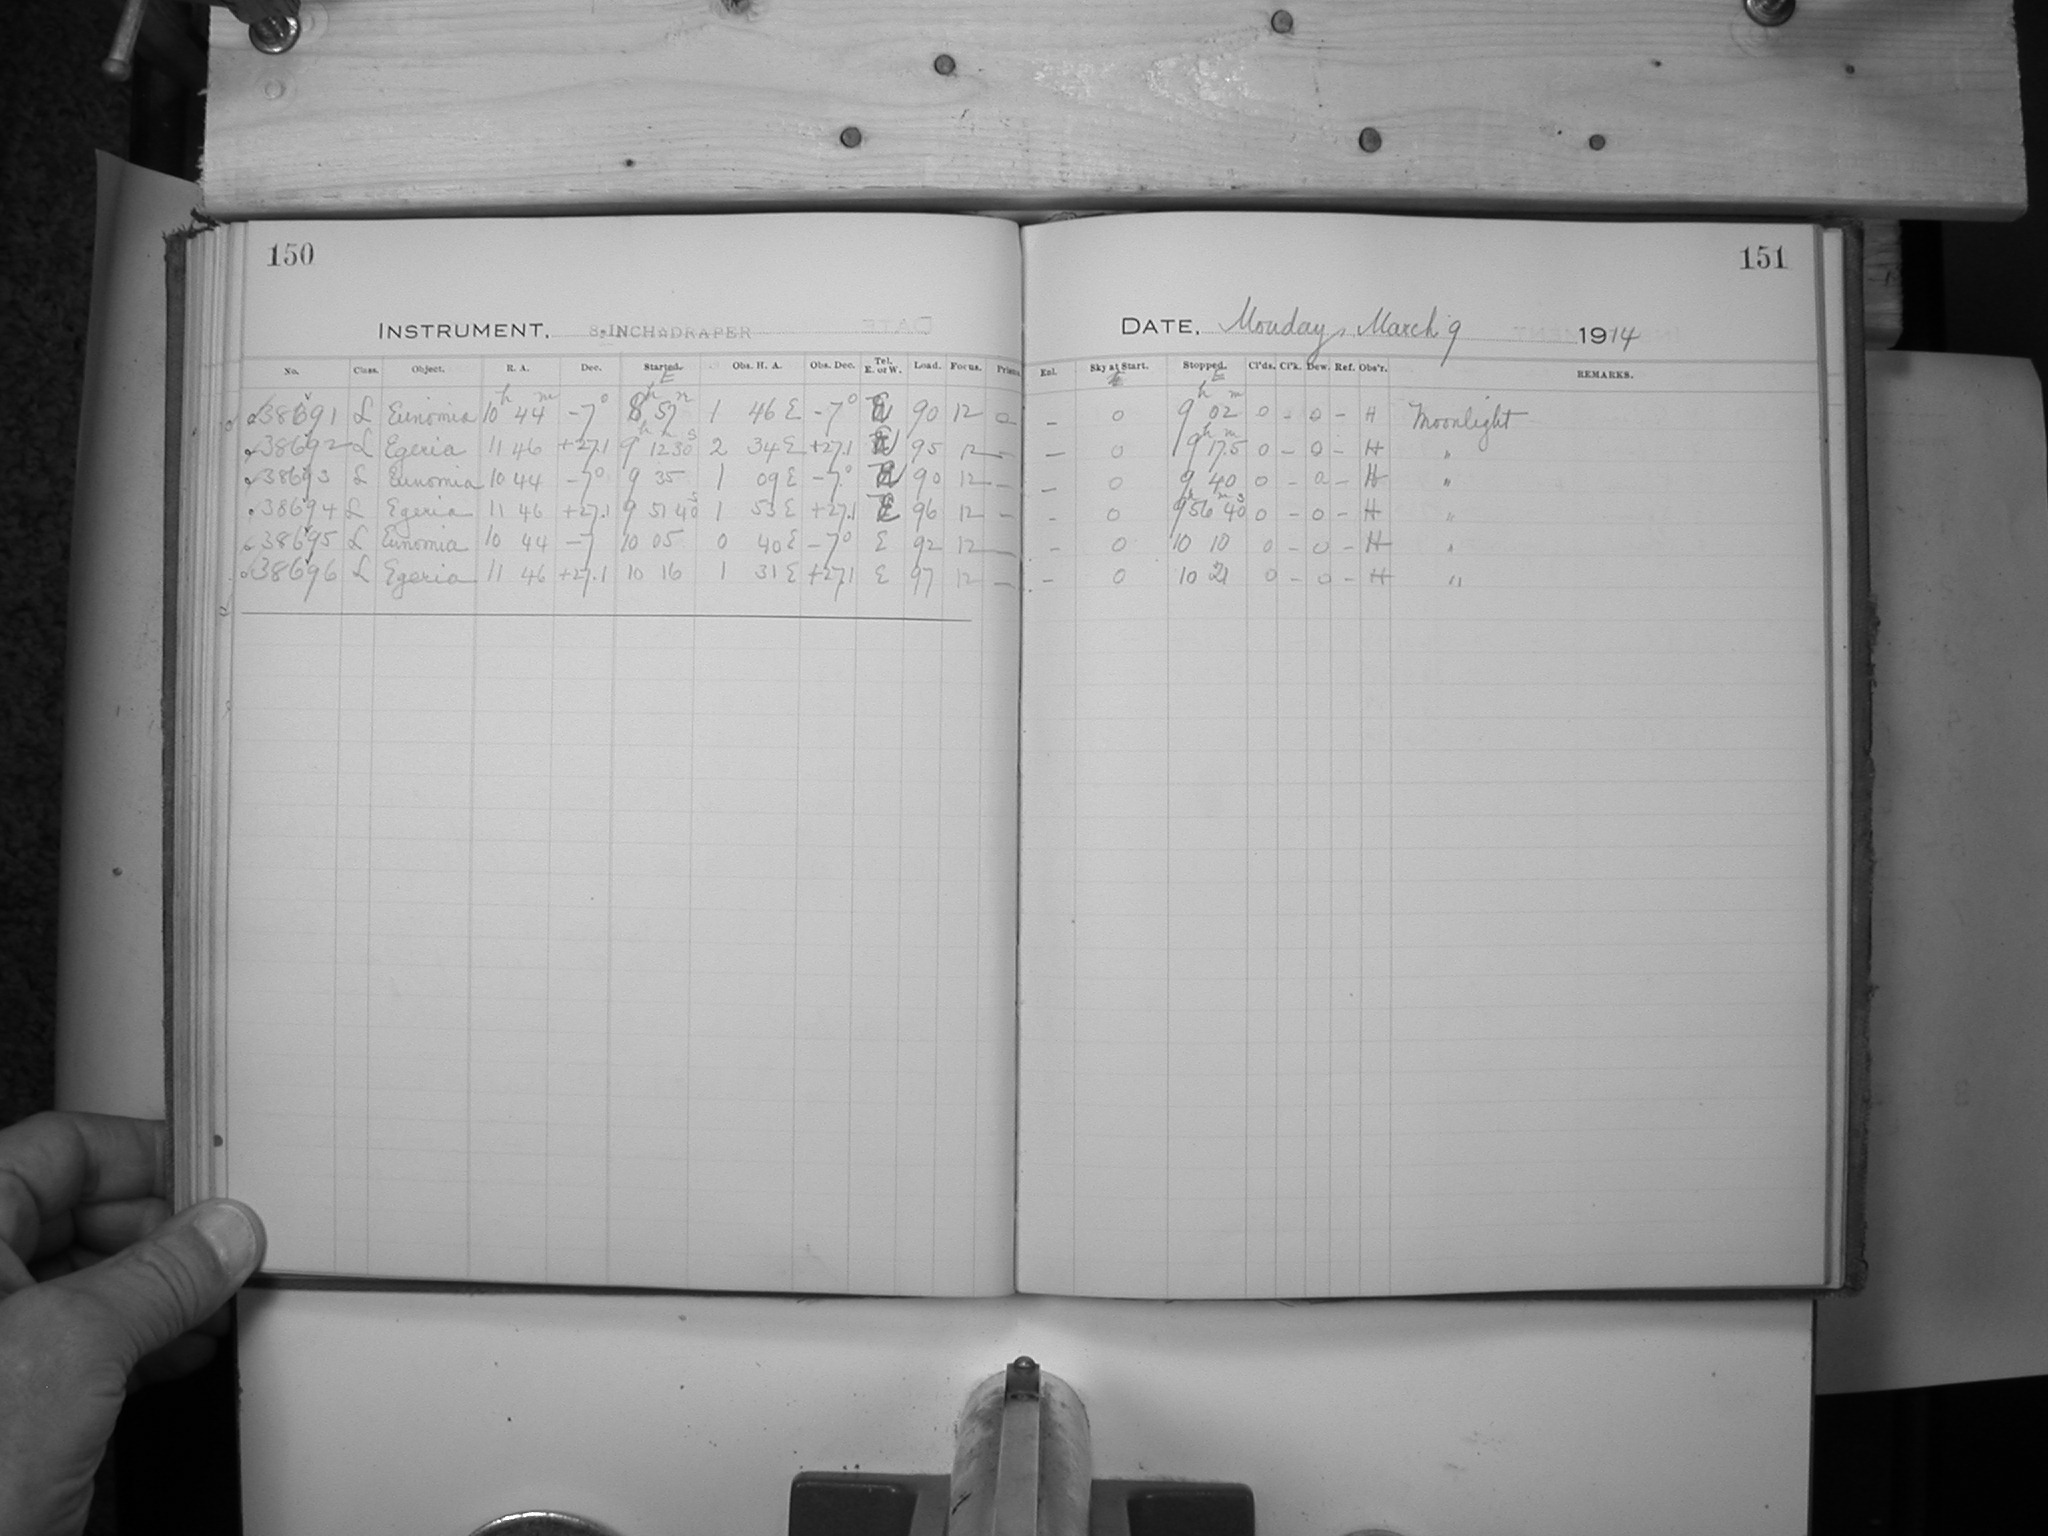 150
INSTRUMENT. 8-INCH DRAPER
No. Class. Object. R. A. Dec. Started. Obs. H. A. Obs. Dec. Tel. E. or W. Load. Focus. Prism
E
38691 L Eunomia 10h 44m -7° 8h 57m 1 46 E -7° 90 12 0
38692 L Egeria 11 46 +27.1 9h 12m 30s 2 34 E +27.1 95 12 -
38693 L Eunomia 10 44 -7° 9 35 1 09 E -7° 90 12 -
38694 L Egeria 11 46 +27.1 9 51 40s 1 53 E +27.1 E 96 12 -
38695 L Eunomia 10 44 -7 10 05 0 40 E -7° E 92 12 -
38696 L Egeria 11 46 +27.1 10 16 1 31 E +27.1 E 97 12 -
151
DATE. Monday, March 9 1914
Enl. Sky at Start. Stopped. Cl'ds. Cl'k. Dew. Ref. Obs'r. REMARKS.
E
- 0 9h 02m 0 - 0 - H Moonlight
- 0 9h 17.5m 0 - 0 - H "
- 0 9 40 0 - 0 - H "
- 0 9h 56m 40s 0 - 0 - H "
- 0 10 10 0 - 0 - H "
- 0 10 21 0 - 0 - H "